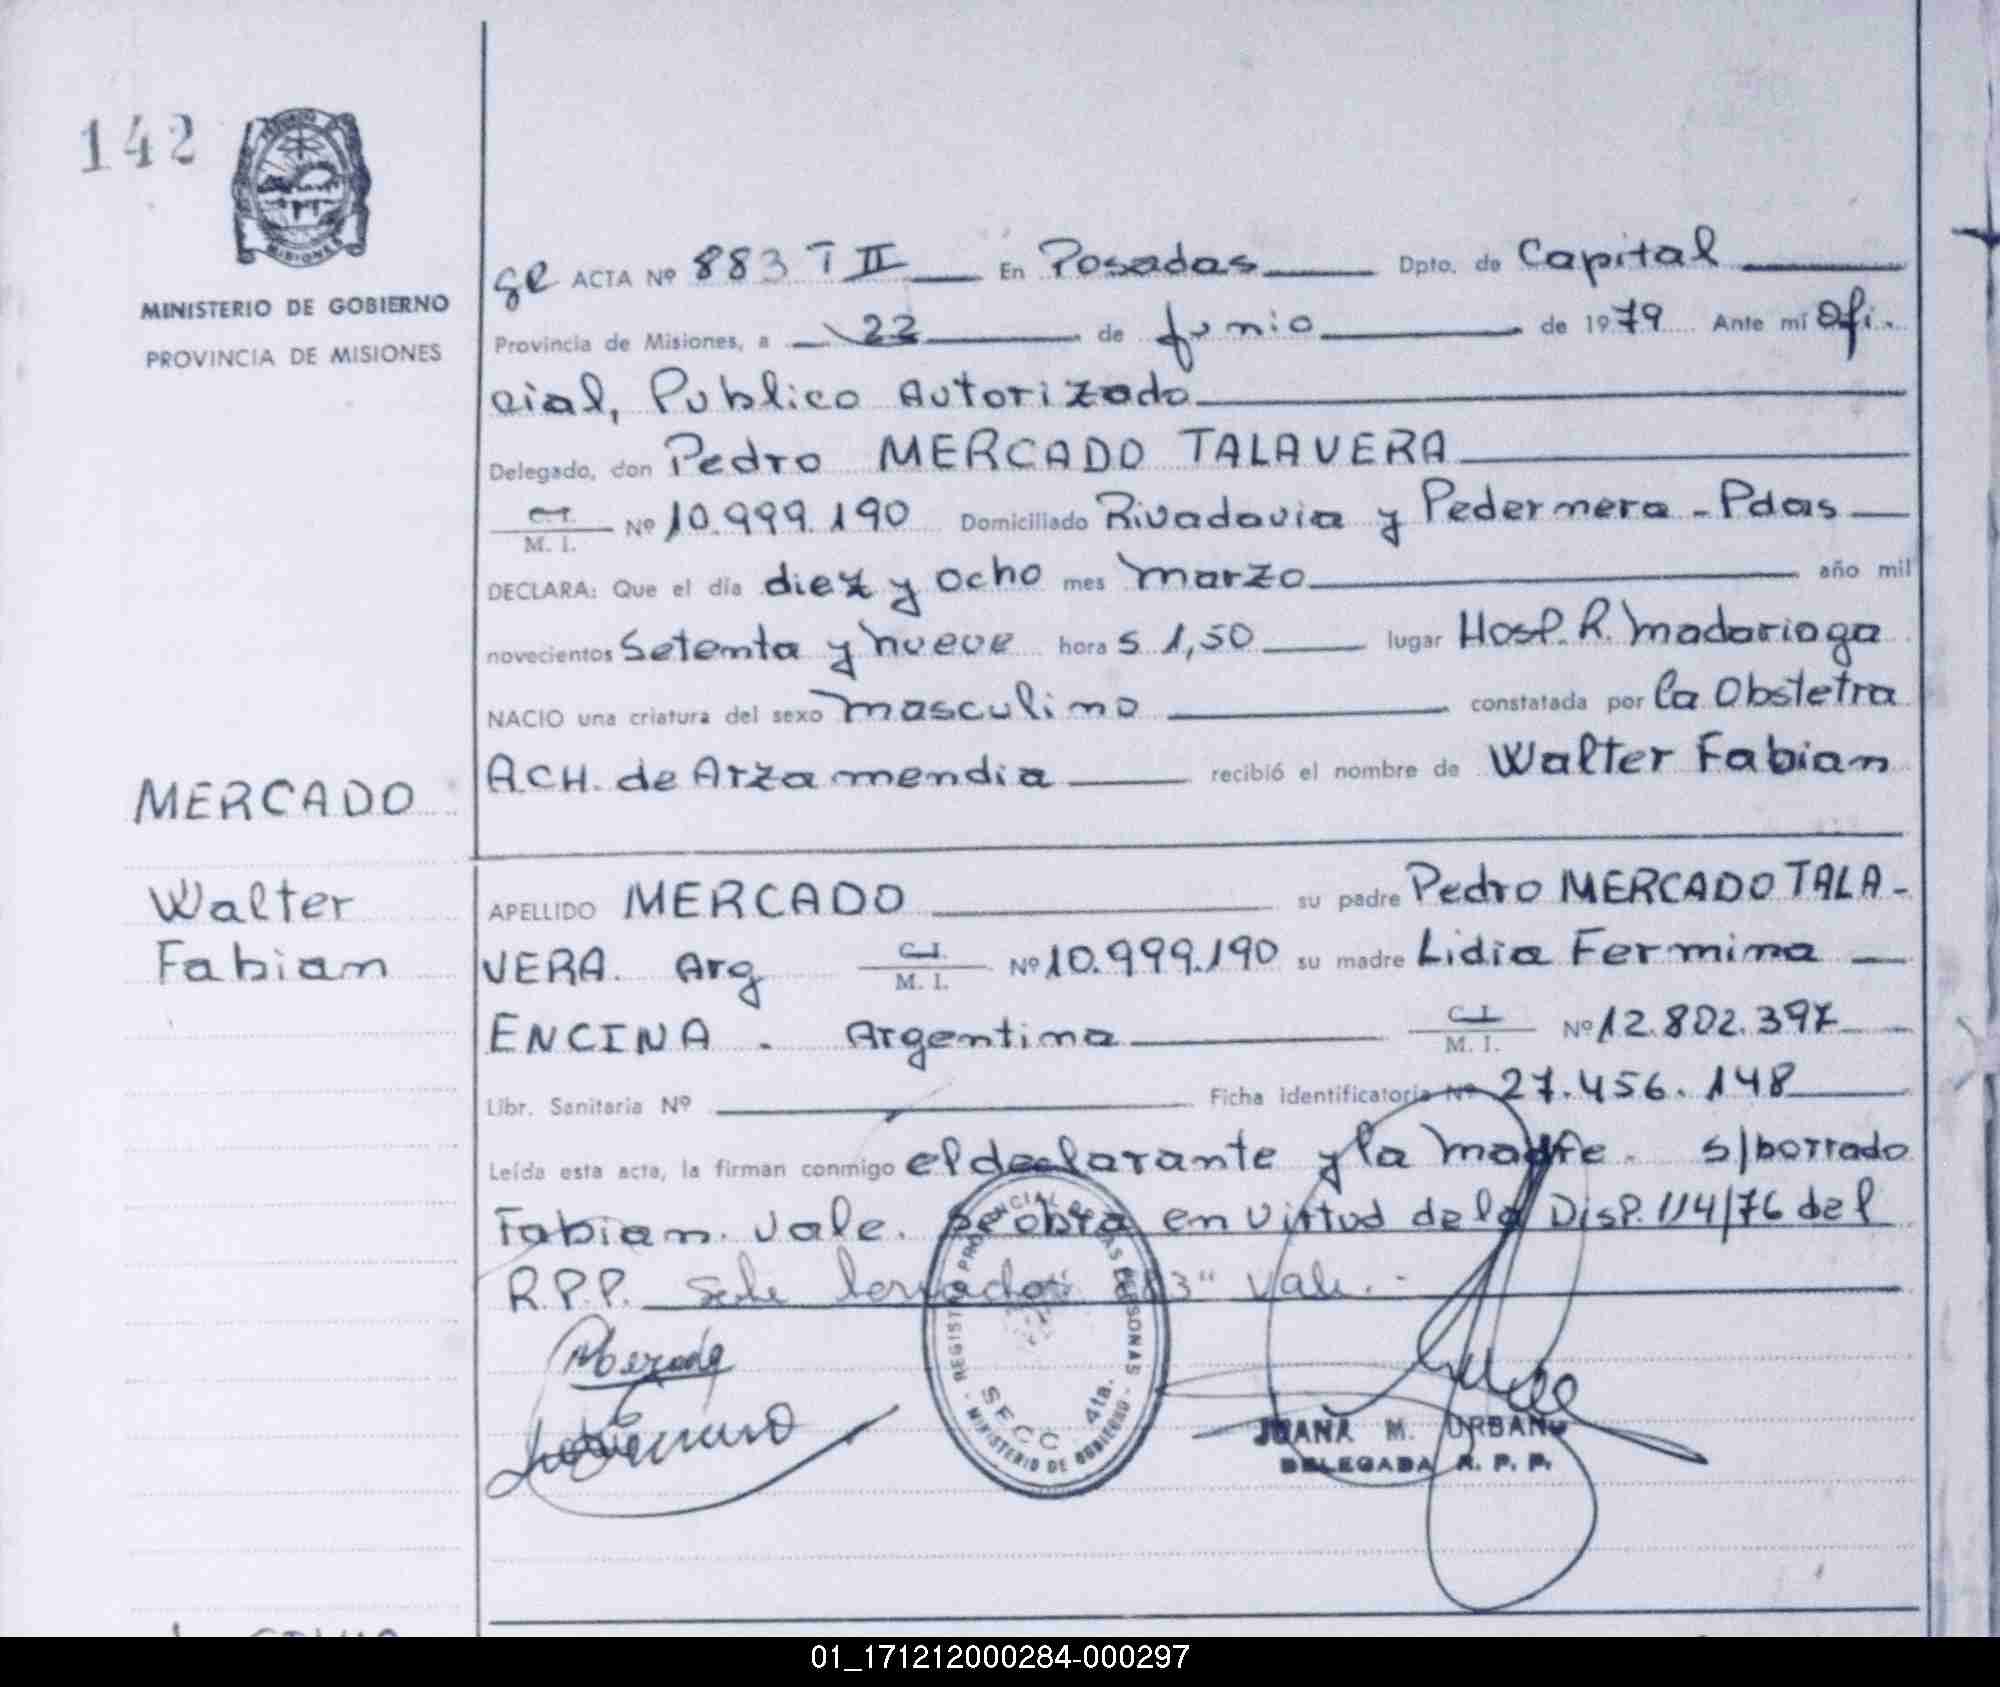 142
MISIONES
MINISTERIO DE GOBIERNO
PROVINCIA DE MISIONES
MERCADO
Walter
Fabian
ACTA Nº 883 T II En Posadas Dpto. de Capital
Provincia de Misiones, a 22 de junio de 1979 Ante mí Ofi.
cial, Publico Autorizado
Delegado, don Pedro MERCADO TALAVERA
C.I. M. I. Nº 10.999.190 Domiciliado Rivadavia y Pedernera - Pdas
DECLARA: Que el día diez y ocho mes marzo año mil
novecientos Setenta y nueve hora s 1,50 lugar Hosp. R. Madariaga
NACIO una criatura del sexo masculino constatada por la Obstetra
ACH. de Arzamendia recibió el nombre de Walter Fabian
APELLIDO MERCADO su padre Pedro MERCADO TALA-
VERA. Arg C.I. M. I. Nº 10.999.190 su madre Lidia Fermina
ENCINA. Argentina C.I. M. I. Nº 12.802.397
Libr. Sanitaria Nº Ficha identificatoria Nº 27.456.148
Leída esta acta, la firman conmigo el declarante y la madre. s/borrado
Fabian. Vale. Se obra en virtud de la Disp. 114/76 del
R.P.P. Vale.-
REGISTRO PROVINCIAL DE LAS PERSONAS
SECC 4ta.
- MINISTERIO DE GOBIERNO -
JUANA M. URBANO
DELEGADA R. P. P.
01_171212000284-000297